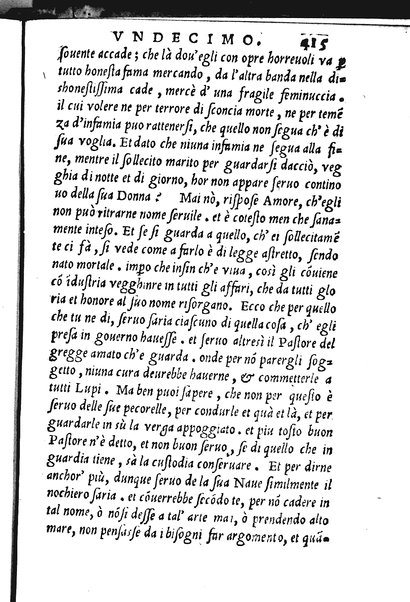 VNDECIMO. 415
souente accade; che là dou'egli con opre horreuoli va ꝑ
tutto honesta fama mercando, da l'altra banda nella di
shonestissima cade, mercè d' una fragile feminuccia.
il cui volere ne per terrore di sconcia morte, ne per temẽ
za d'infamia puo rattenersi, che quello non segua ch' è di
sua voglia. Et dato che niuna infamia ne segua alla fi-
ne, mentre il sollecito marito per guardarsi dacciò, veg
ghia di notte et di giorno, hor non appare seruo contino
uo della sua Donna? Mai nò, rispose Amore, ch'egli
non può ritrarne nome seruile. et è cotesto men che sana-
mente inteso. Et se si guarda a quello, ch' ei sollecitamẽ
te ci fà, si vede come a farlo è di legge astretto, sendo
nato mortale. impo che insin ch'e viua, così gli cõuiene
cõ ĩdustria vegghire in tutti gli affari, che da tutti glo
ria et honore al suo nome risorgano. Ecco che per quello
che tu ne di, seruo saria ciascuno di quella cosa, ch' egli
presa in gouerno hauesse. et seruo altresì il Pastore del
gregge amato ch'e guarda. onde per nõ parergli sog-
getto, niuna cura deurebbe hauerne, & commetterle a
tutti Lupi. Ma ben puoi sapere, che non per questo è
seruo delle sue pecorelle, per condurle et quà et là, et per
guardarle in sù la verga appoggiato. et piu tosto buon
Pastore n'è detto, et non buon seruo, se di quello che in
guardia tiene, sà la custodia conseruare. Et per dirne
anchor' più, dunque seruo de la sua Naue similmente il
nochiero saria. et cõuerrebbe secõdo te, per nõ cadere in
tal nome, ò nõsi desse a tal' arte mai, ò prendendo alto
mare, non pensasse da i bisogni far argomento, et quã-